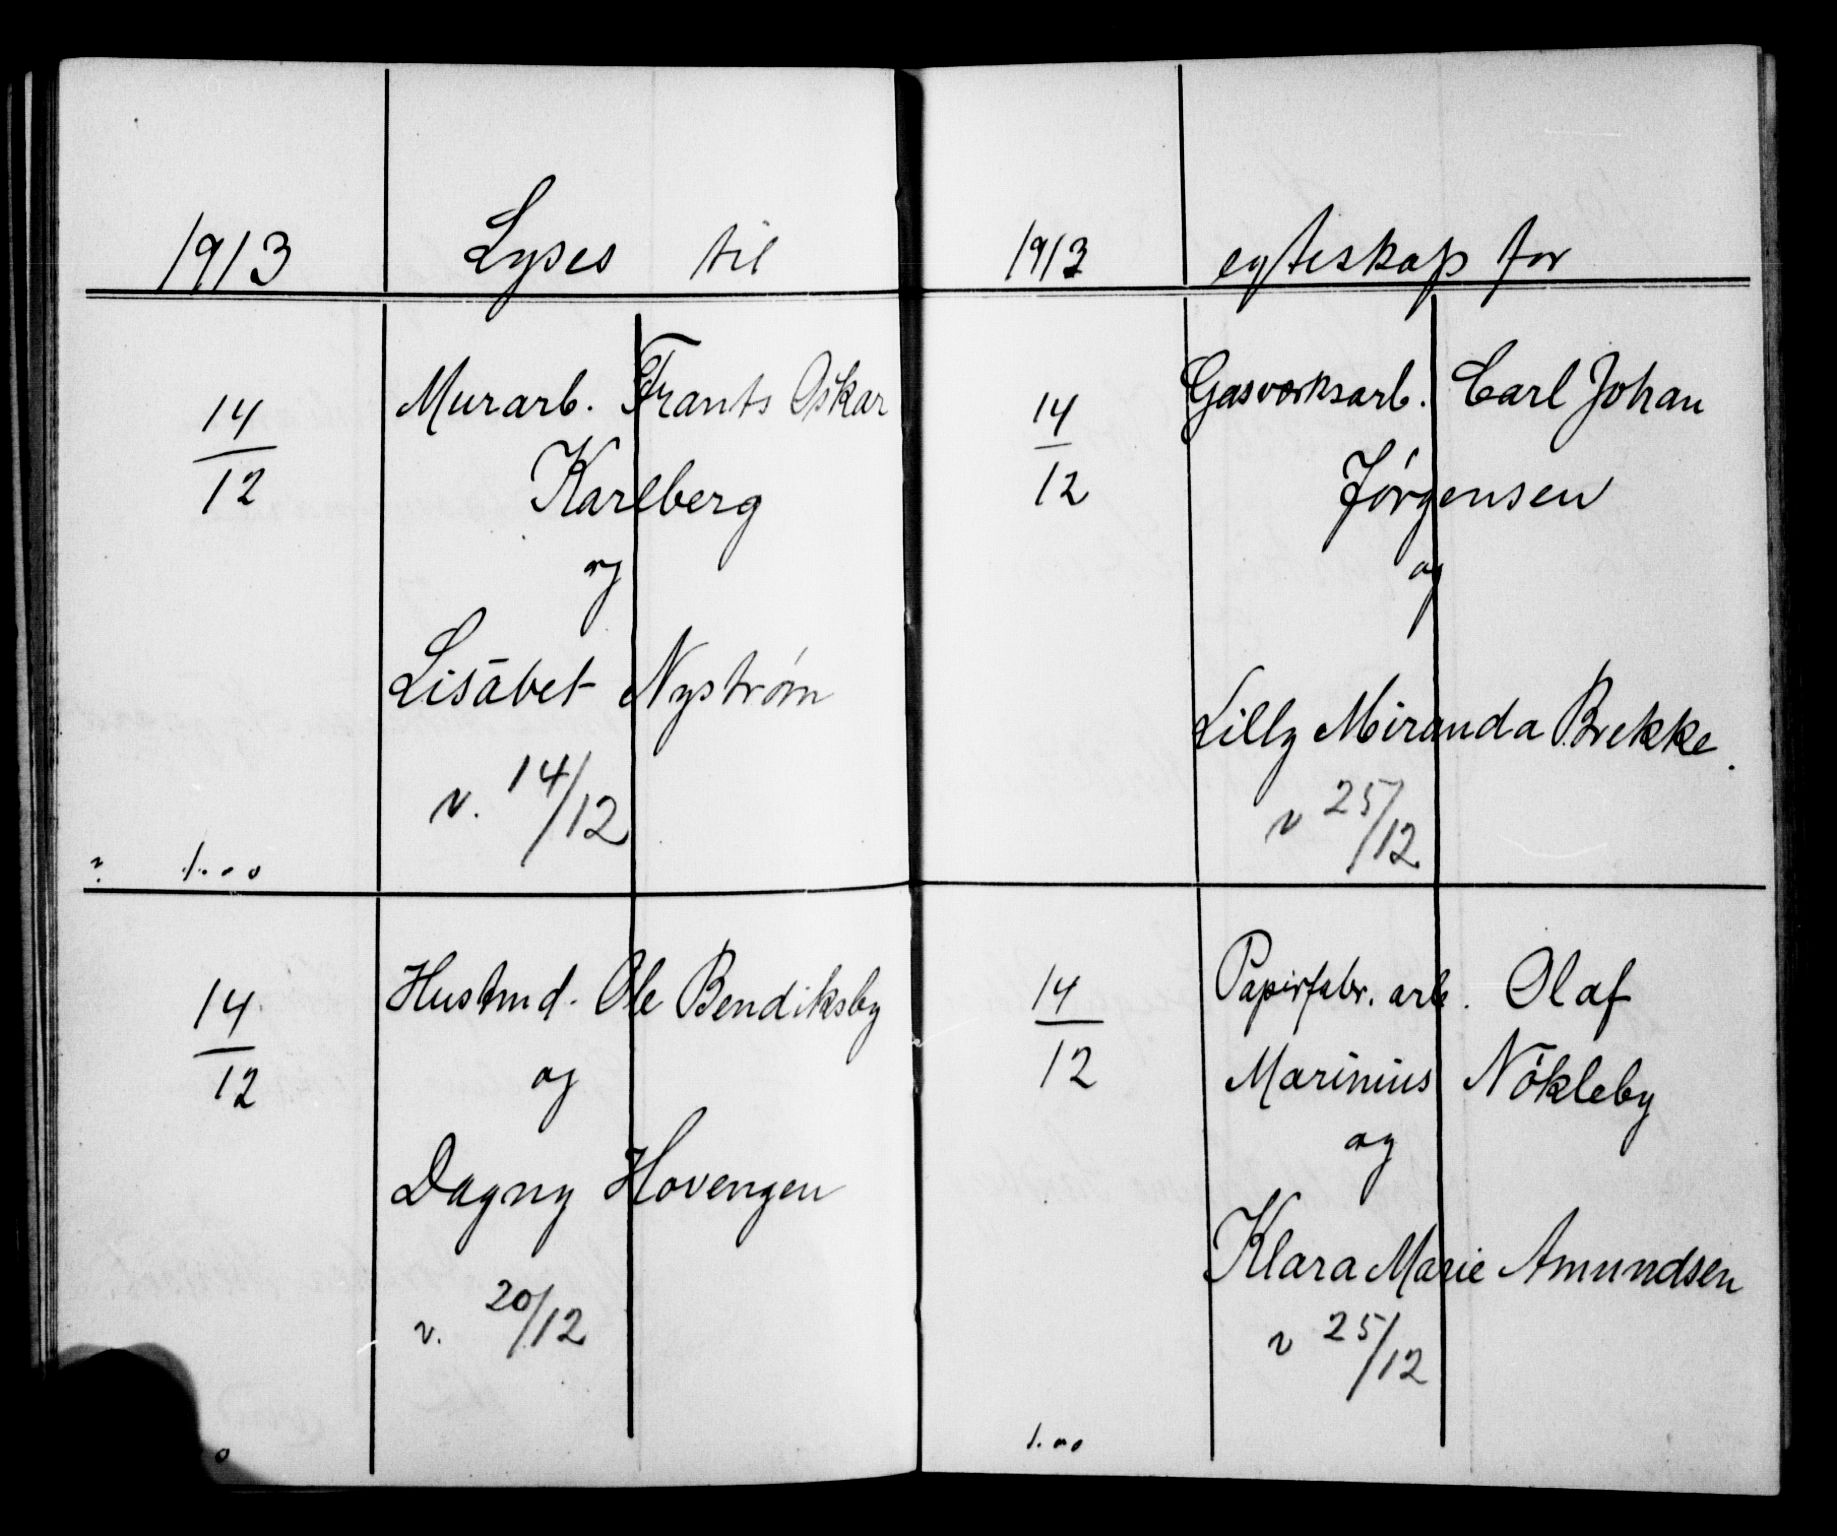 1913 Lyses til
14/12 Murarb. Frants Oskar
Karlberg
og
Lisabet Nystrøm
v. 14/12
1.00
14/12 Ole Bendiksby
og
Dagny Hovengen
v. 20/12
1913 egteskap for
14/12 Gasverksarb. Carl Johan
Jørgensen
og
Lilly Miranda Brekke.
v 25/12
14/12 Papirfabr. arb. Olaf
Marinius Nökleby
og
Klara Marie Amundsen
v 25/12
1.00